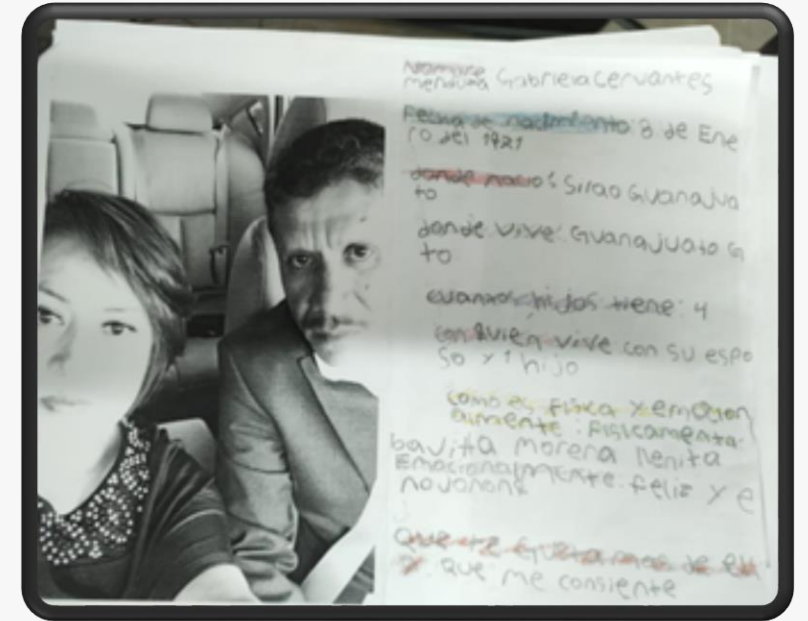 Nombre Gabriela Cervantes
menduea
Fecha de nacimiento: 8 de Ene
ro del 1921
donde nacio: Silao Guanajua
to
donde vive: Guanajuato G
to
cuantos hijos tiene: 4
con quien vive con su espo
so y 1 hijo
como es fisica y emocion
almente: fisicamente:
bavitta morena llenita
Emocionalmente: feliz y e
que te gusta mas de ell
que me consiente